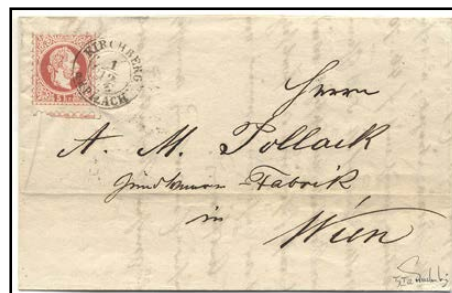 KIRCHBERG
1
12
PIELACH
Herrn
A. M. Pollack
Zündwaren-Fabrik
in
Wien